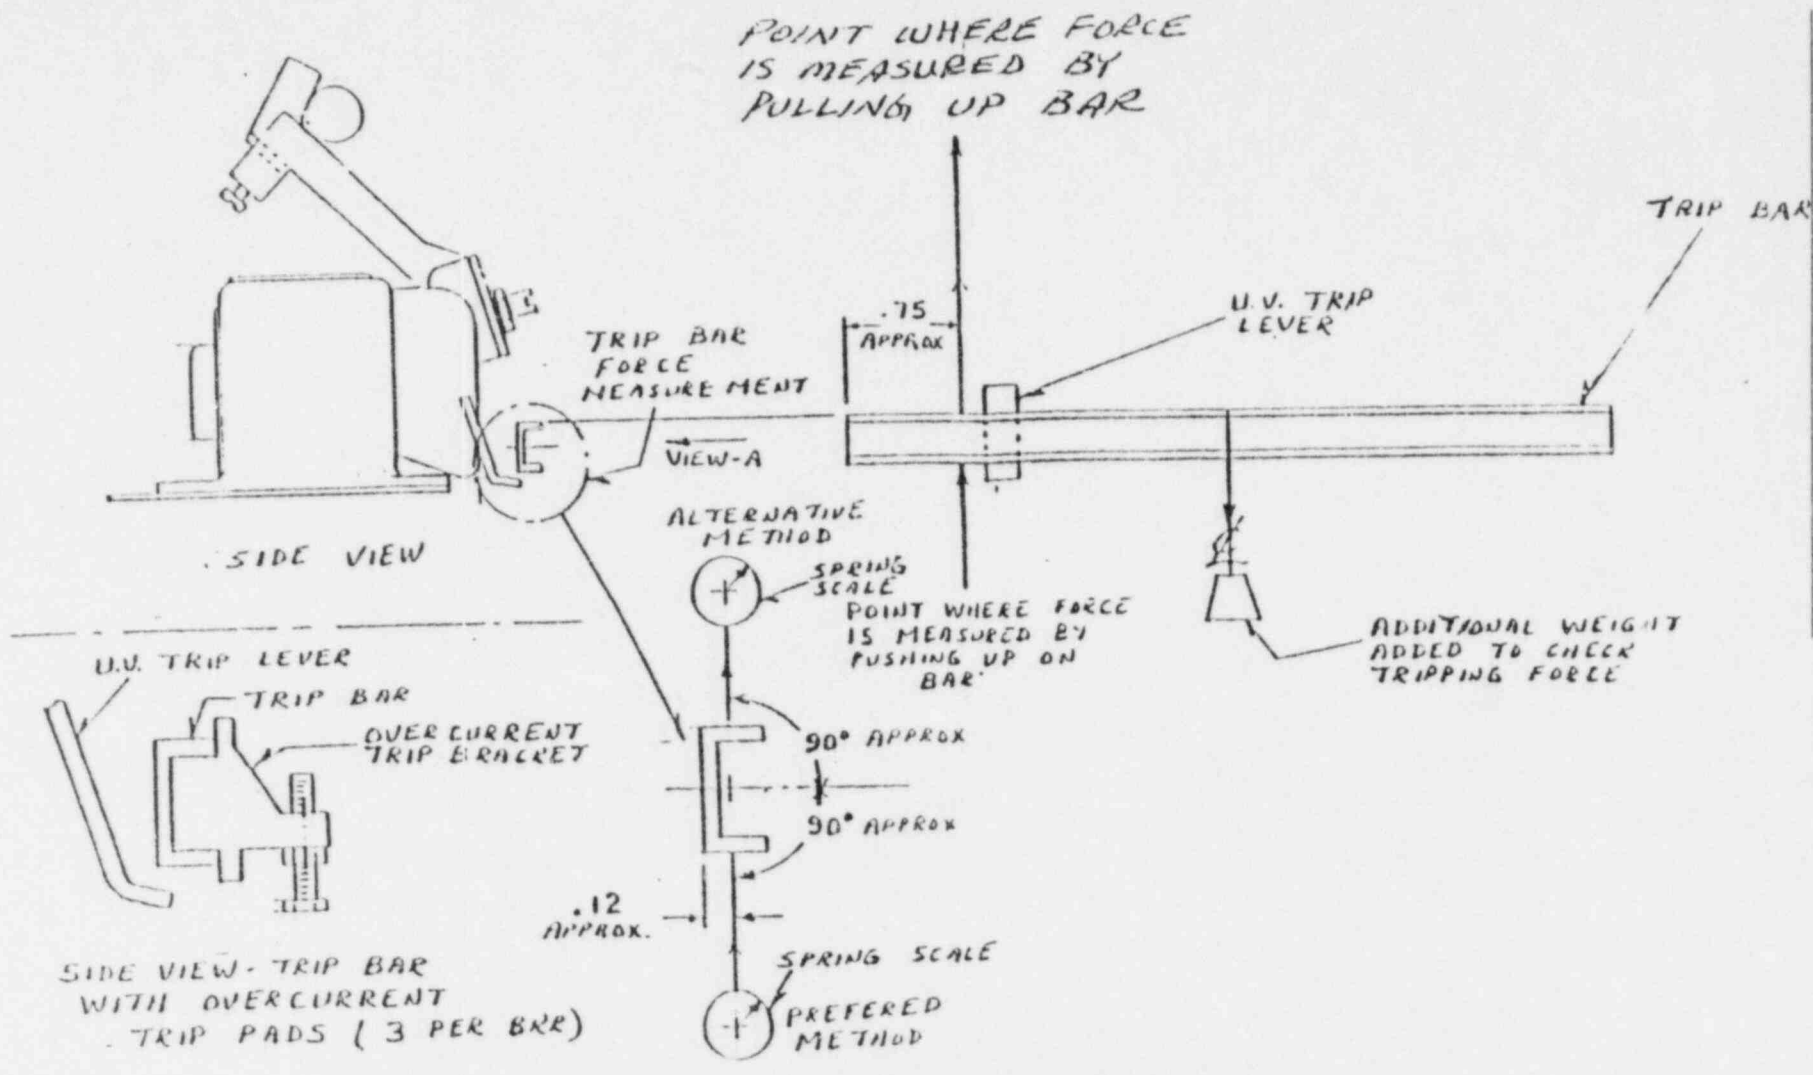 POINT WHERE FORCE
IS MEASURED BY
PULLING UP BAR
TRIP BAR
.75
APPROX
U.V. TRIP
LEVER
TRIP BAR
FORCE
MEASUREMENT
VIEW-A
SIDE VIEW
ALTERNATIVE
METHOD
SPRING
SCALE
POINT WHERE FORCE
IS MEASURED BY
PUSHING UP ON
BAR
ADDITIONAL WEIGHT
ADDED TO CHECK
TRIPPING FORCE
U.V. TRIP LEVER
TRIP BAR
OVERCURRENT
TRIP BRACKET
90° APPROX
90° APPROX
.12
APPROX.
SPRING SCALE
PREFERED
METHOD
SIDE VIEW - TRIP BAR
WITH OVERCURRENT
TRIP PADS ( 3 PER BKR)